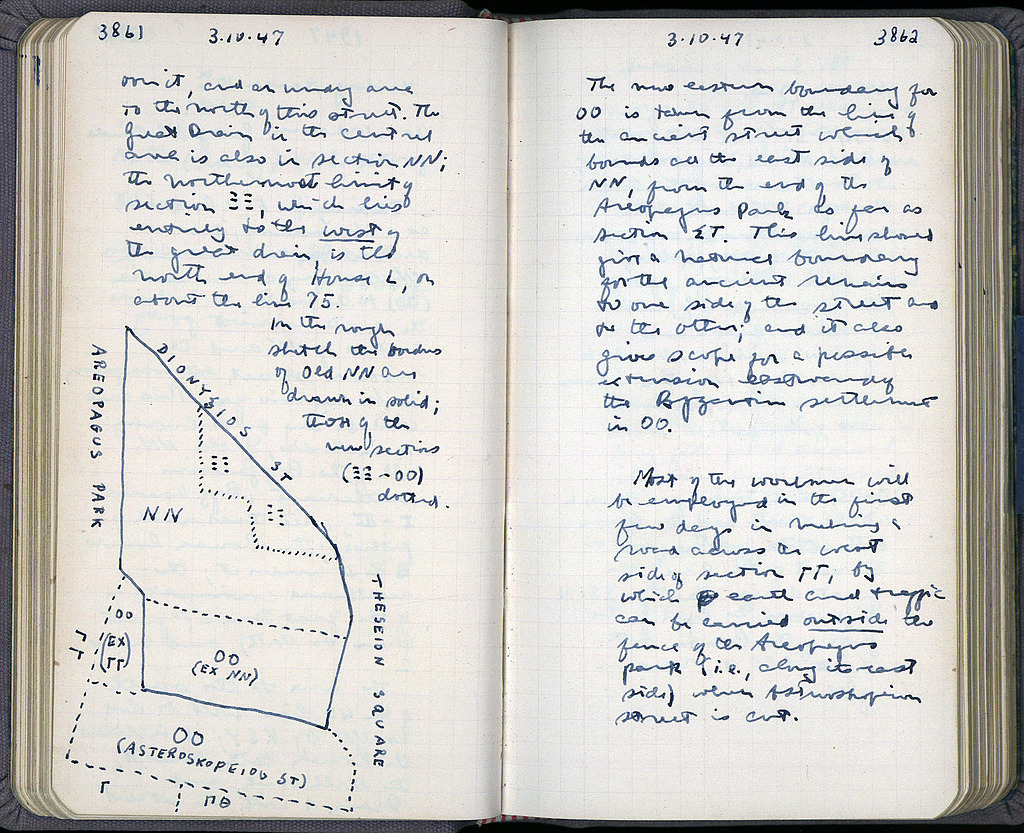 3861 3·10·47
on it, and an undug area
to the north of this street. The
Great Drain in the central
area is also in section NN;
the northernmost limit of
section ΞΞ, which lies
entirely to the west of
the great drain, is the
north end of House L, on
about the line 75.
In the rough
sketch the borders
of old NN are
drawn in solid;
those of the
new sections
(ΞΞ - OO)
dotted.
AREOPAGUS PARK
DIONYSIOS ST
ΞΞ
NN
ΞΞ
THESEION SQUARE
OO
(EX
ΓΓ)
ΓΓ
OO
(EX NN)
OO
(ASTEROSKOPEIOU ST)
Γ
ΠΘ
3·10·47 3862
The new eastern boundary for
OO is taken from the line of
the ancient street which
bounds all the east side of
NN, from the end of the
Areopagus Park as far as
section ΣΤ. This line should
give a natural boundary
for the ancient remains
to one side of the street and
to the other; and it also
gives scope for a possible
extension eastwards of
the Byzantine settlement
in OO.
Most of the workmen will
be employed in the first
few days in making a
road across the west
side of section ΓΓ, by
which earth and traffic
can be carried outside the
fence of the Areopagus
park (i.e., along its east
side) when Asteroskopeiou
street is cut.